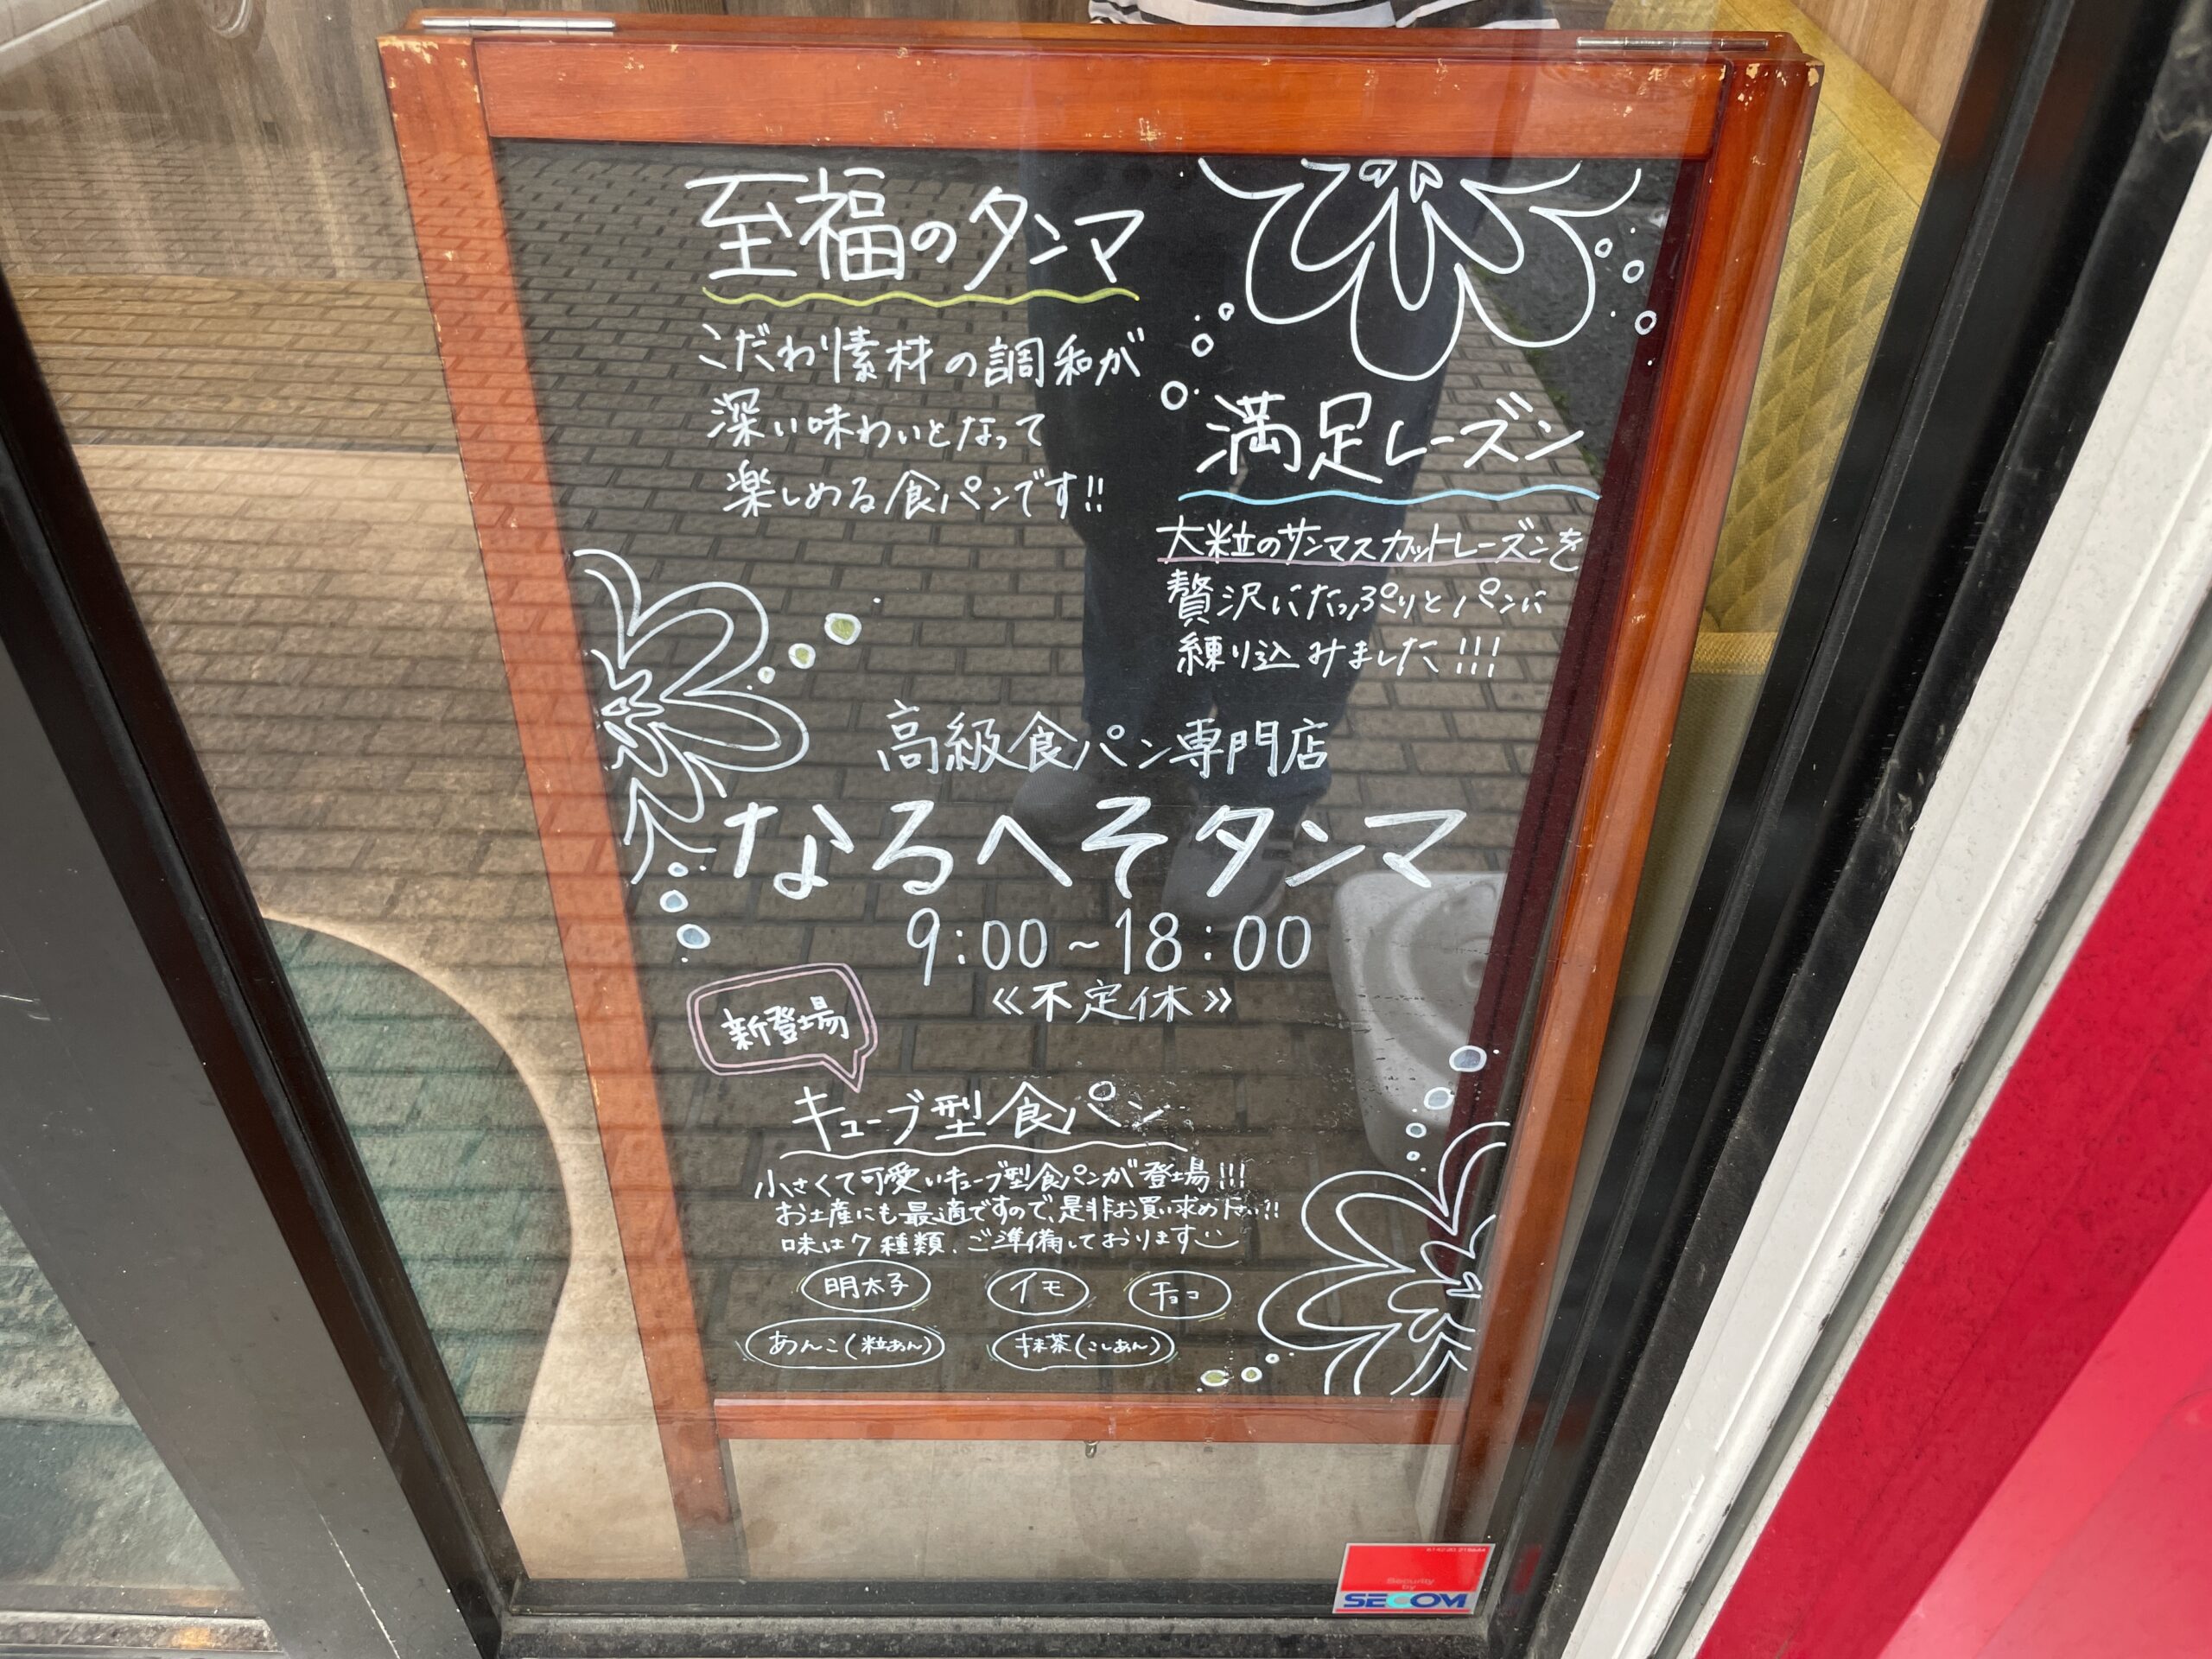 至福のタンマ
こだわり素材の調和が
深い味わいとなって
楽しめる食パンです!!
満足レーズン
大粒のサンマスカットレーズンを
贅沢にたっぷりとパンに
練り込みました!!!
高級食パン専門店
なるへそタンマ
9:00~18:00
《不定休》
新登場
キューブ型食パン
小さくて可愛いキューブ型食パンが登場!!!
お土産にも最適ですので、是非お買い求め下さい!!
味は7種類、ご準備しております
明太子 イモ チョコ
あんこ(粒あん) 抹茶(こしあん)
Security
by
SECOM